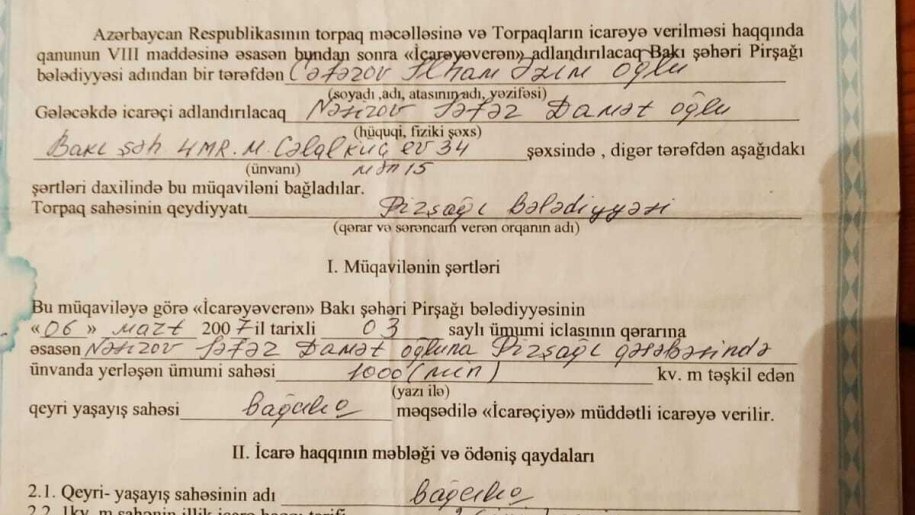 Azərbaycan Respublikasının torpaq məcəlləsinə və Torpaqların icarəyə verilməsi haqqında
qanunun VIII maddəsinə əsasən bundan sonra «İcarəyəverən» adlandırılacaq Bakı şəhəri Pirşağı
bələdiyyəsi adından bir tərəfdən Cəfərov İlham Əzim oğlu
(soyadı ,adı, atasının adı, vəzifəsi)
Gələcəkdə icarəçi adlandırılacaq Nəsirov Səfər Damət oğlu
(hüquqi, fiziki şəxs)
Bakı şəh 4 MR. M. Cəlal küç ev 34 şəxsində , digər tərəfdən aşağıdakı
(ünvanı) mən 15
şərtləri daxilində bu müqaviləni bağladılar.
Torpaq sahəsinin qeydiyyatı Pirşağı bələdiyyəsi
(qərar və sərəncam verən orqanın adı)
I. Müqavilənin şərtləri
Bu müqaviləyə görə «İcarəyəverən» Bakı şəhəri Pirşağı bələdiyyəsinin
«06 » mart 2007 il tarixli 03 saylı ümumi iclasının qərarına
əsasən Nəsirov Səfər Damət oğluna Pirşağı qəsəbəsində
ünvanda yerləşən ümumi sahəsi 1000 (min) kv. m təşkil edən
(yazı ilə)
qeyri yaşayış sahəsi məqsədilə «İcarəçiyə» müddətli icarəyə verilir.
II. İcarə haqqının məbləği və ödəniş qaydaları
2.1. Qeyri- yaşayış sahəsinin adı
2.2. 1kv. m sahənin illik icarə haqqı tarifi